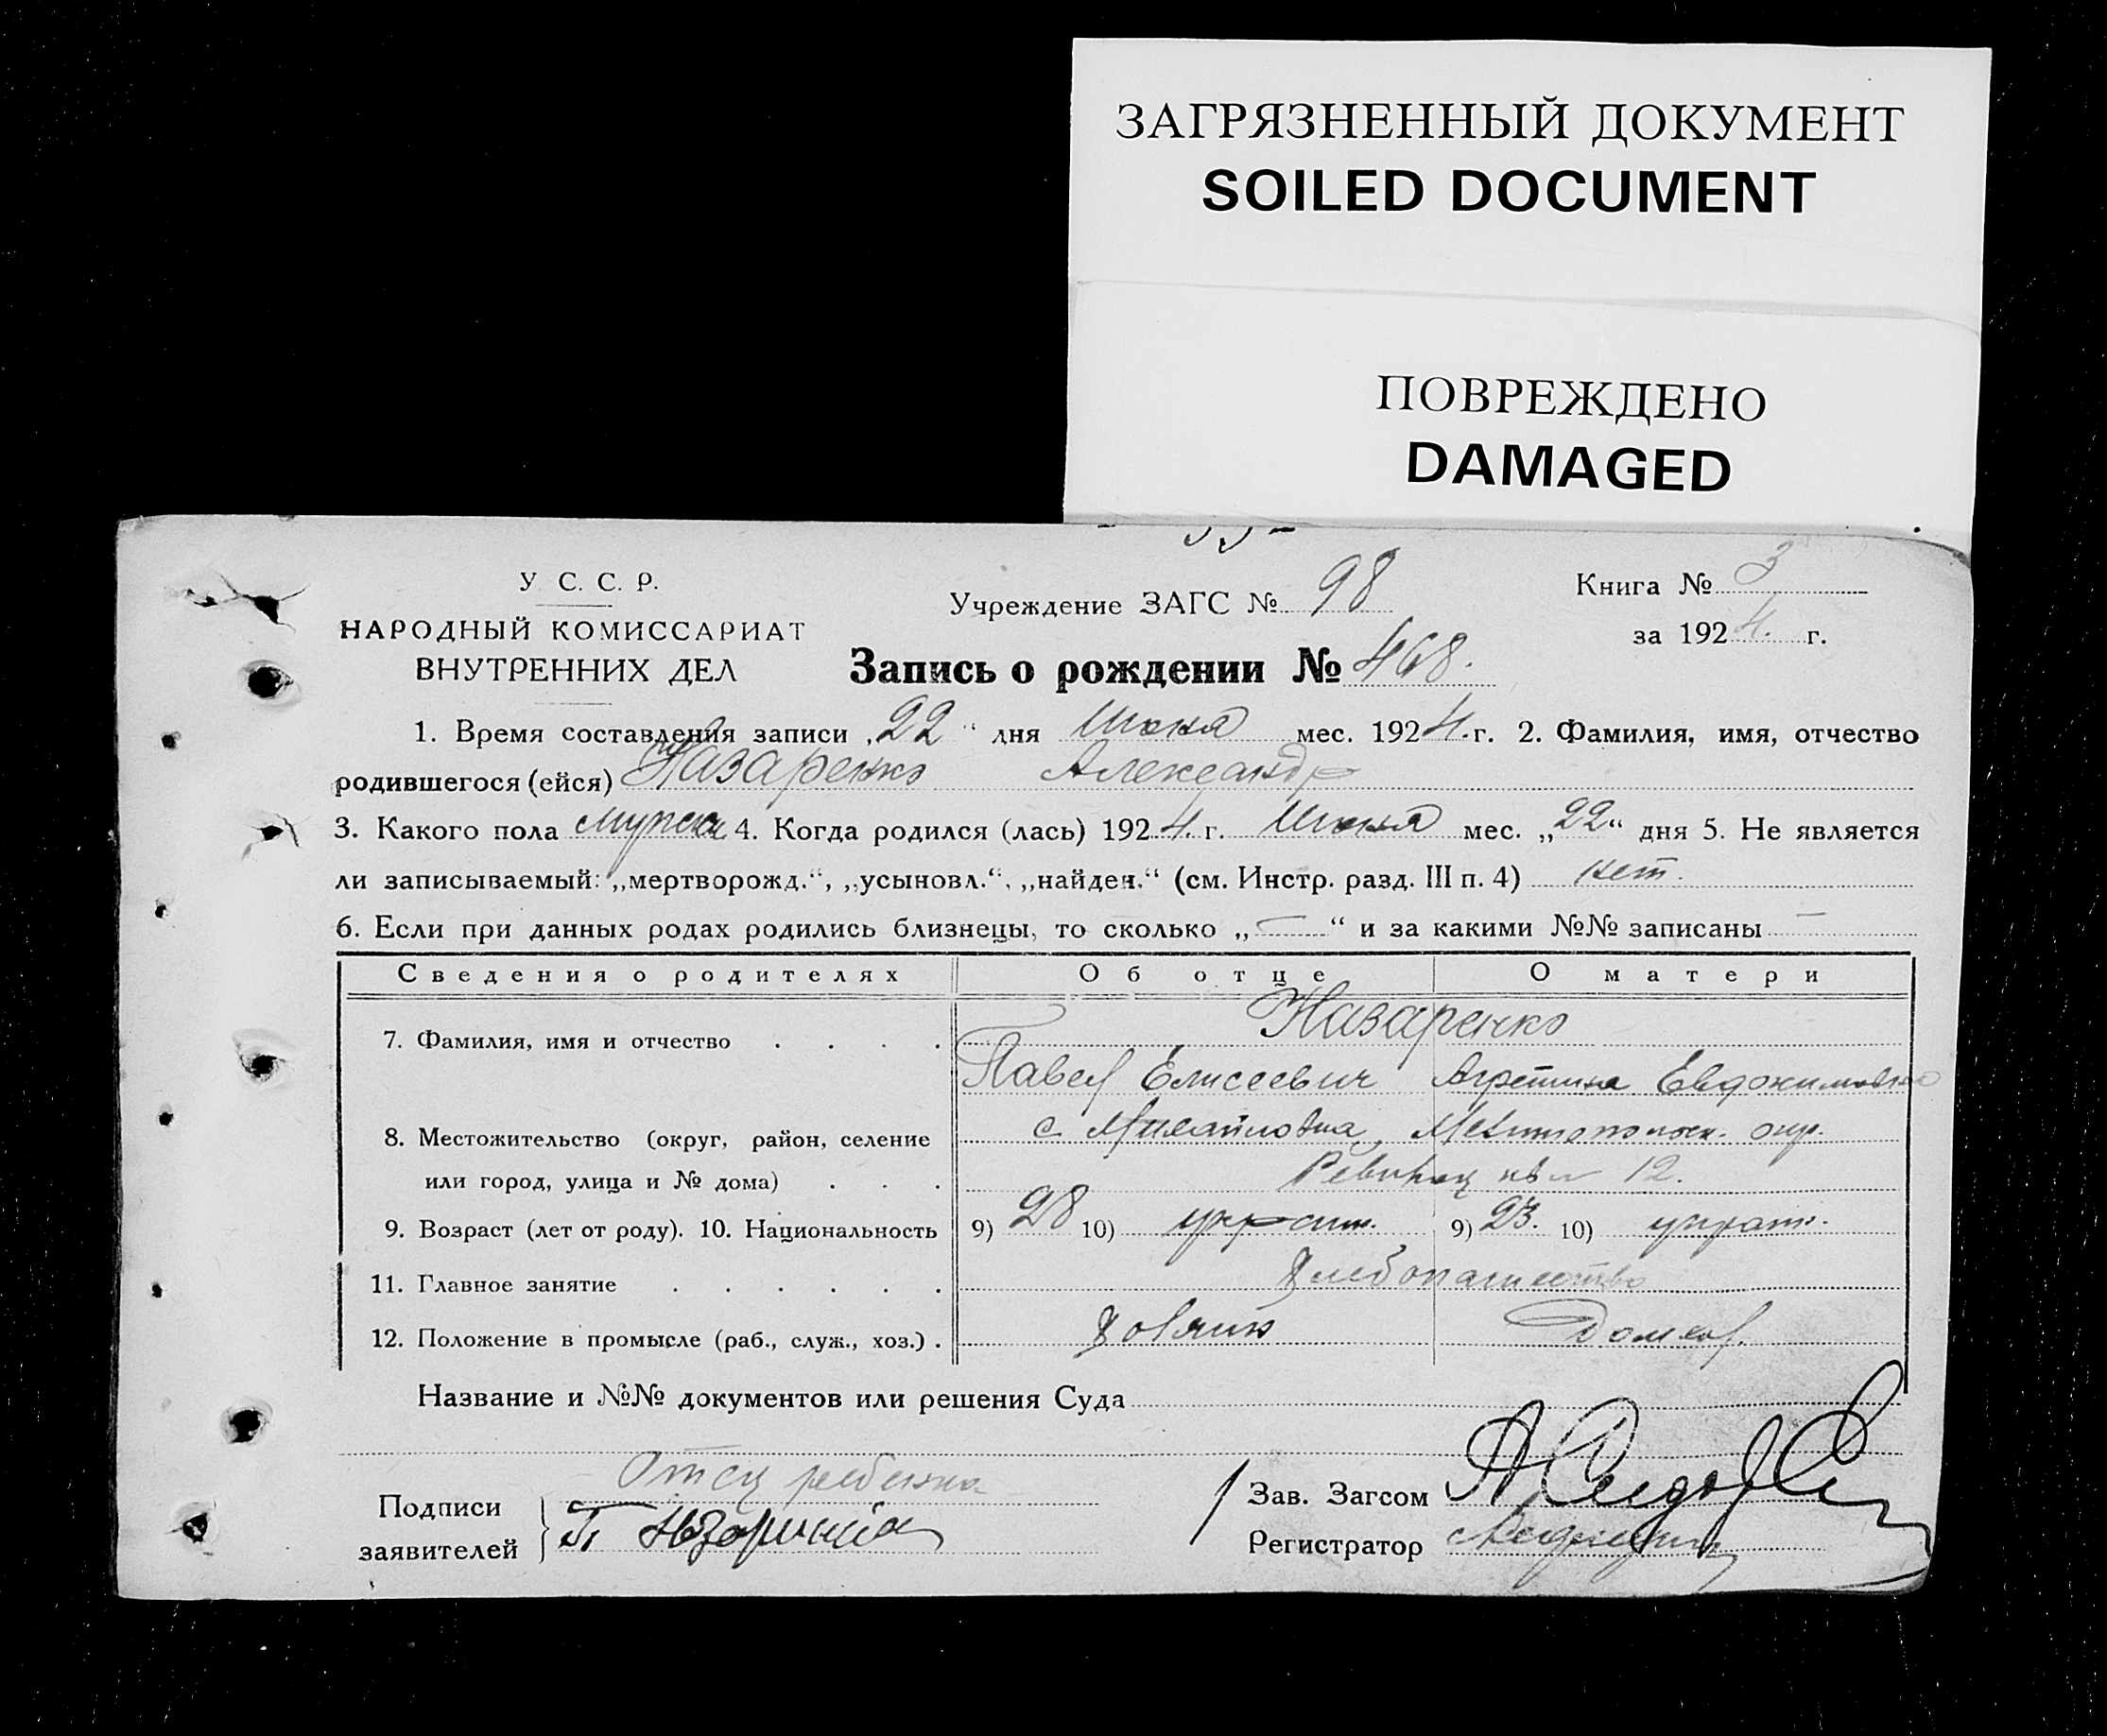 ЗАГРЯЗНЕННЫЙ ДОКУМЕНТ
SOILED DOCUMENT
ПОВРЕЖДЕНО
DAMAGED
У С. С. Р.
НАРОДНЫЙ КОМИССАРИАТ
ВНУТРЕННИХ ДЕЛ
Учреждение ЗАГС № 98
Книга № 3
за 1924. г.
Запись о рождении № 468.
1. Время составления записи „22“ дня Июня мес. 1924. г. 2. Фамилия, имя, отчество
родившегося (ейся) Назаренко Александр
3. Какого пола мужск 4. Когда родился (лась) 1924. г. Июня мес. „22“ дня 5. Не является
ли записываемый: „мертворожд.“, „усыновл.“, „найден.“ (см. Инстр. разд. III п. 4) нет.
6. Если при данных родах родились близнецы, то сколько „—“ и за какими №№ записаны —
Сведения о родителях Об отце О матери
7. Фамилия, имя и отчество . . . . Назаренко
Павел Елисеевич Агрепина Евдокимовна
8. Местожительство (округ, район, селение с. Михайловка, Мелитопольск. окр.
или город, улица и № дома) . . . 12.
9. Возраст (лет от роду). 10. Национальность 9) 28 10) украин. 9) 23. 10) украин.
11. Главное занятие . . . . . . Хлебопашество
12. Положение в промысле (раб., служ., хоз.) . Хозяин Домхоз.
Название и №№ документов или решения Суда
Отец ребенка
Подписи
заявителей П Назаренко
Зав. Загсом
Регистратор